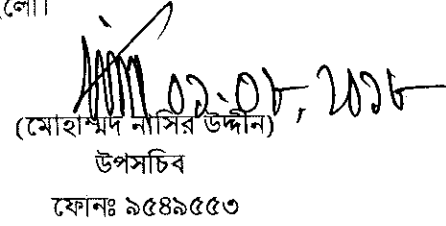 লো।
০১.০৮.২০১৮
(মোহাম্মদ নাসির উদ্দীন)
উপসচিব
ফোনঃ ৯৫৪৯৫৫৩